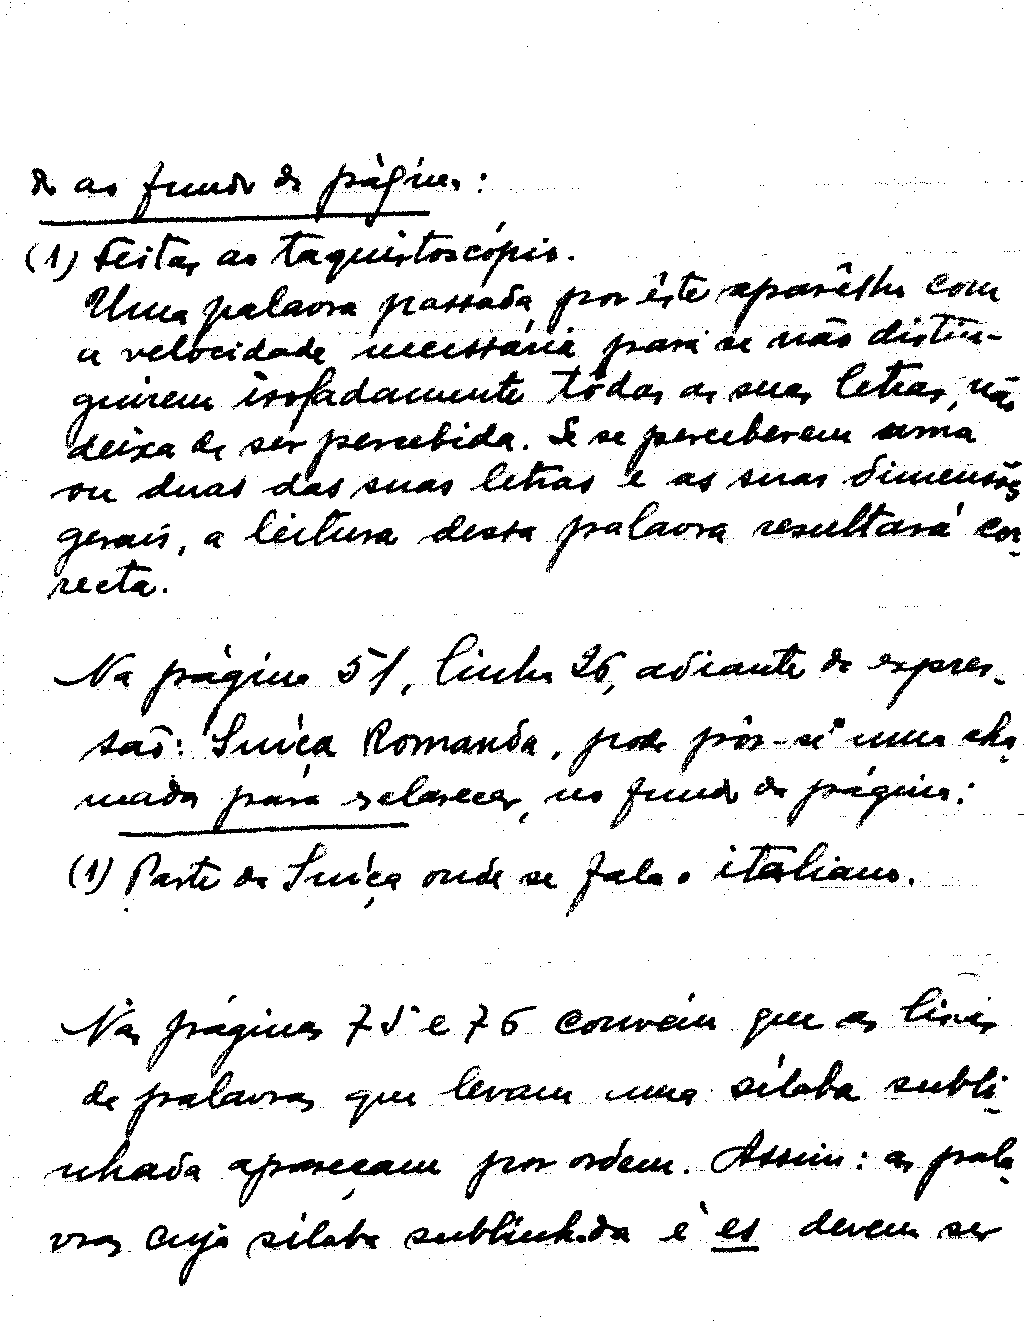 da ao fundo da página:
(1) Feitas ao taquistoscópio.
Uma palavra passada por êste aparêlho com
a velocidade necessária para se não distin-
guirem isoladamente tôdas as suas letras, não
deixa de ser percebida. Se se perceberem uma
ou duas das suas letras e as suas dimensões
gerais, a leitura dessa palavra resultará cor-
recta.
Na página 51, linha 26, adiante da expres-
são: Suíça Romanda, pode pôr-se uma cha-
mada para esclarecer, no fundo da página:
(1) Parte da Suíça onde se fala o italiano.
Nas páginas 75 e 76 convém que as listas
de palavras que levam uma sílaba subli-
nhada apareçam por ordem. Assim: as pala-
vras cuja sílaba sublinhada é es devem ser